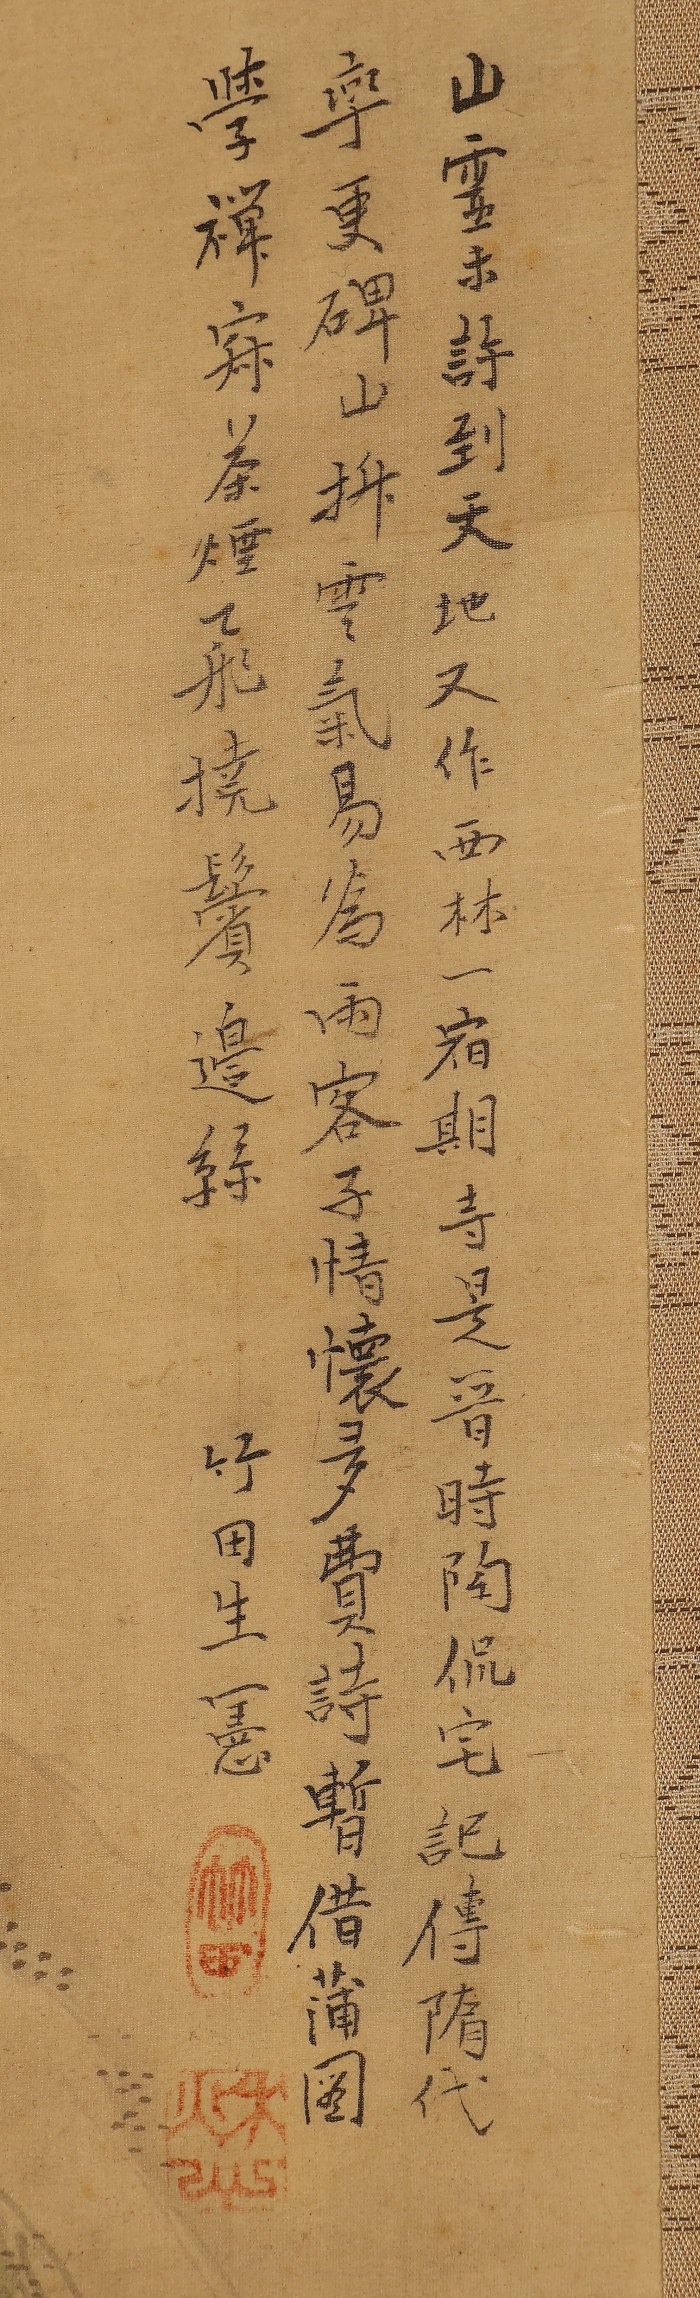 山靈未許到天地又作西林一宿期寺是晉時陶侃宅記傳隋代
率更碑山排雲氣易為雨客子情懷多費詩暫借蒲團
學禪寂茶煙飛撓鬢邊絲 竹田生憲
竹田